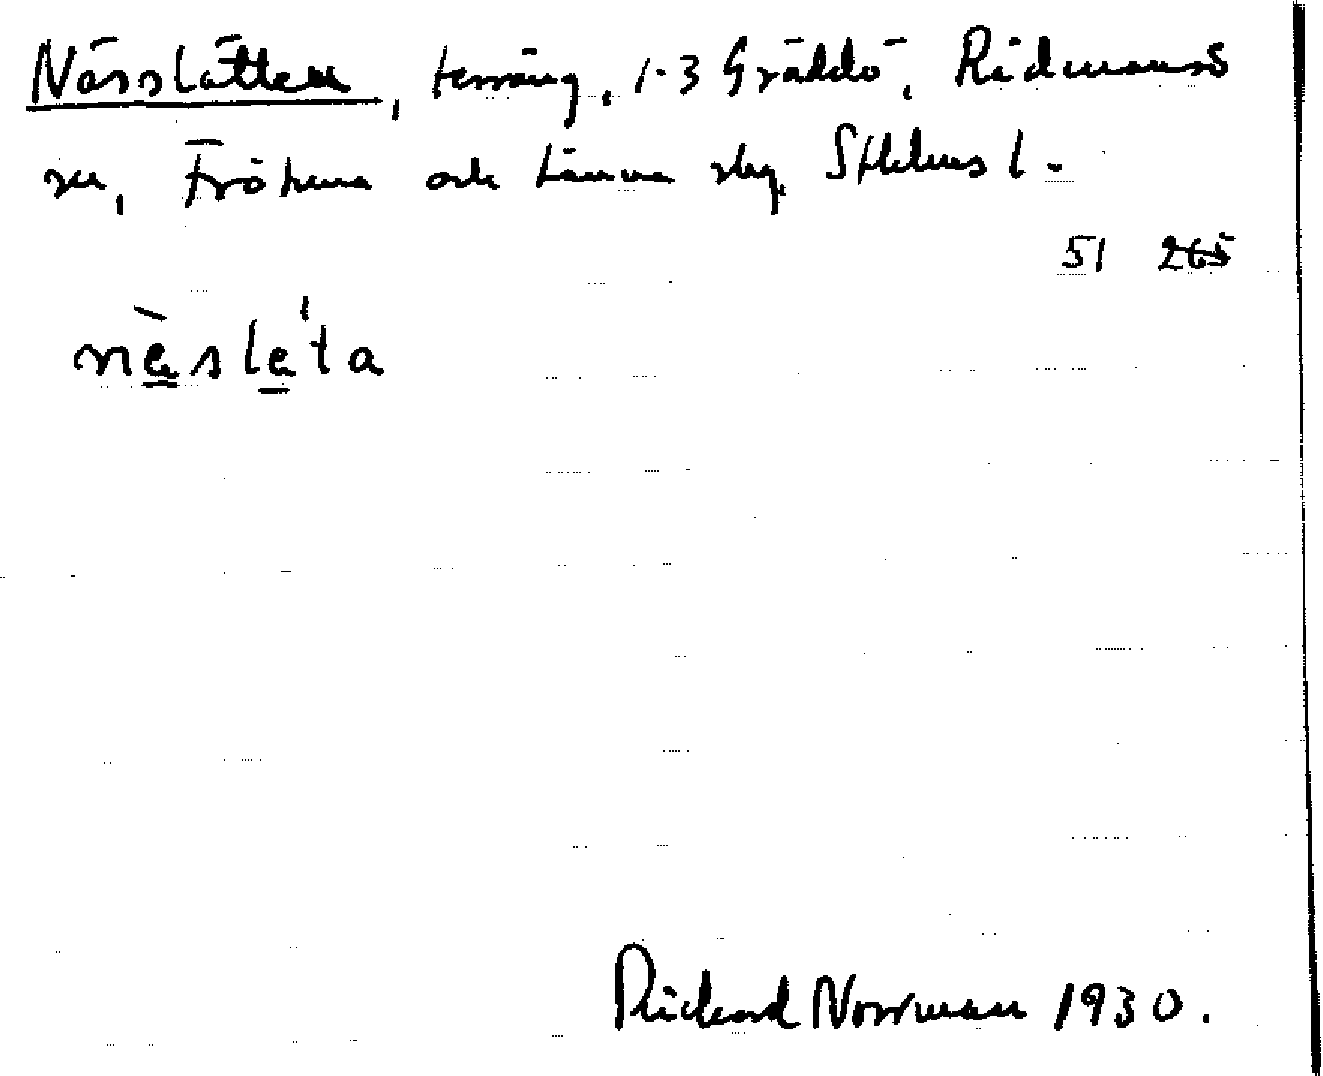 Nässlätten, terräng, 1-3 Gräddö, Rådmansö
sn, Frötuna och Länna skg, Sthlms l.
51 265
nèsle'ta
Rickard Norrman 1930.